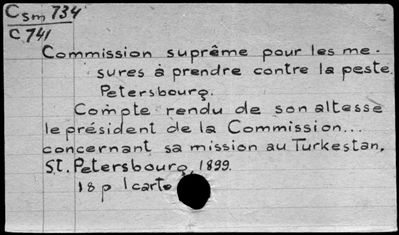 Csm 734
C 741
Commission suprême pour les me-
sures à prendre contre la peste.
Petersbourg.
Compte rendu de son altesse
le président de la Commission...
concernant sa mission au Turkestan.
St. Petersbourg, 1899.
18 p 1 carte